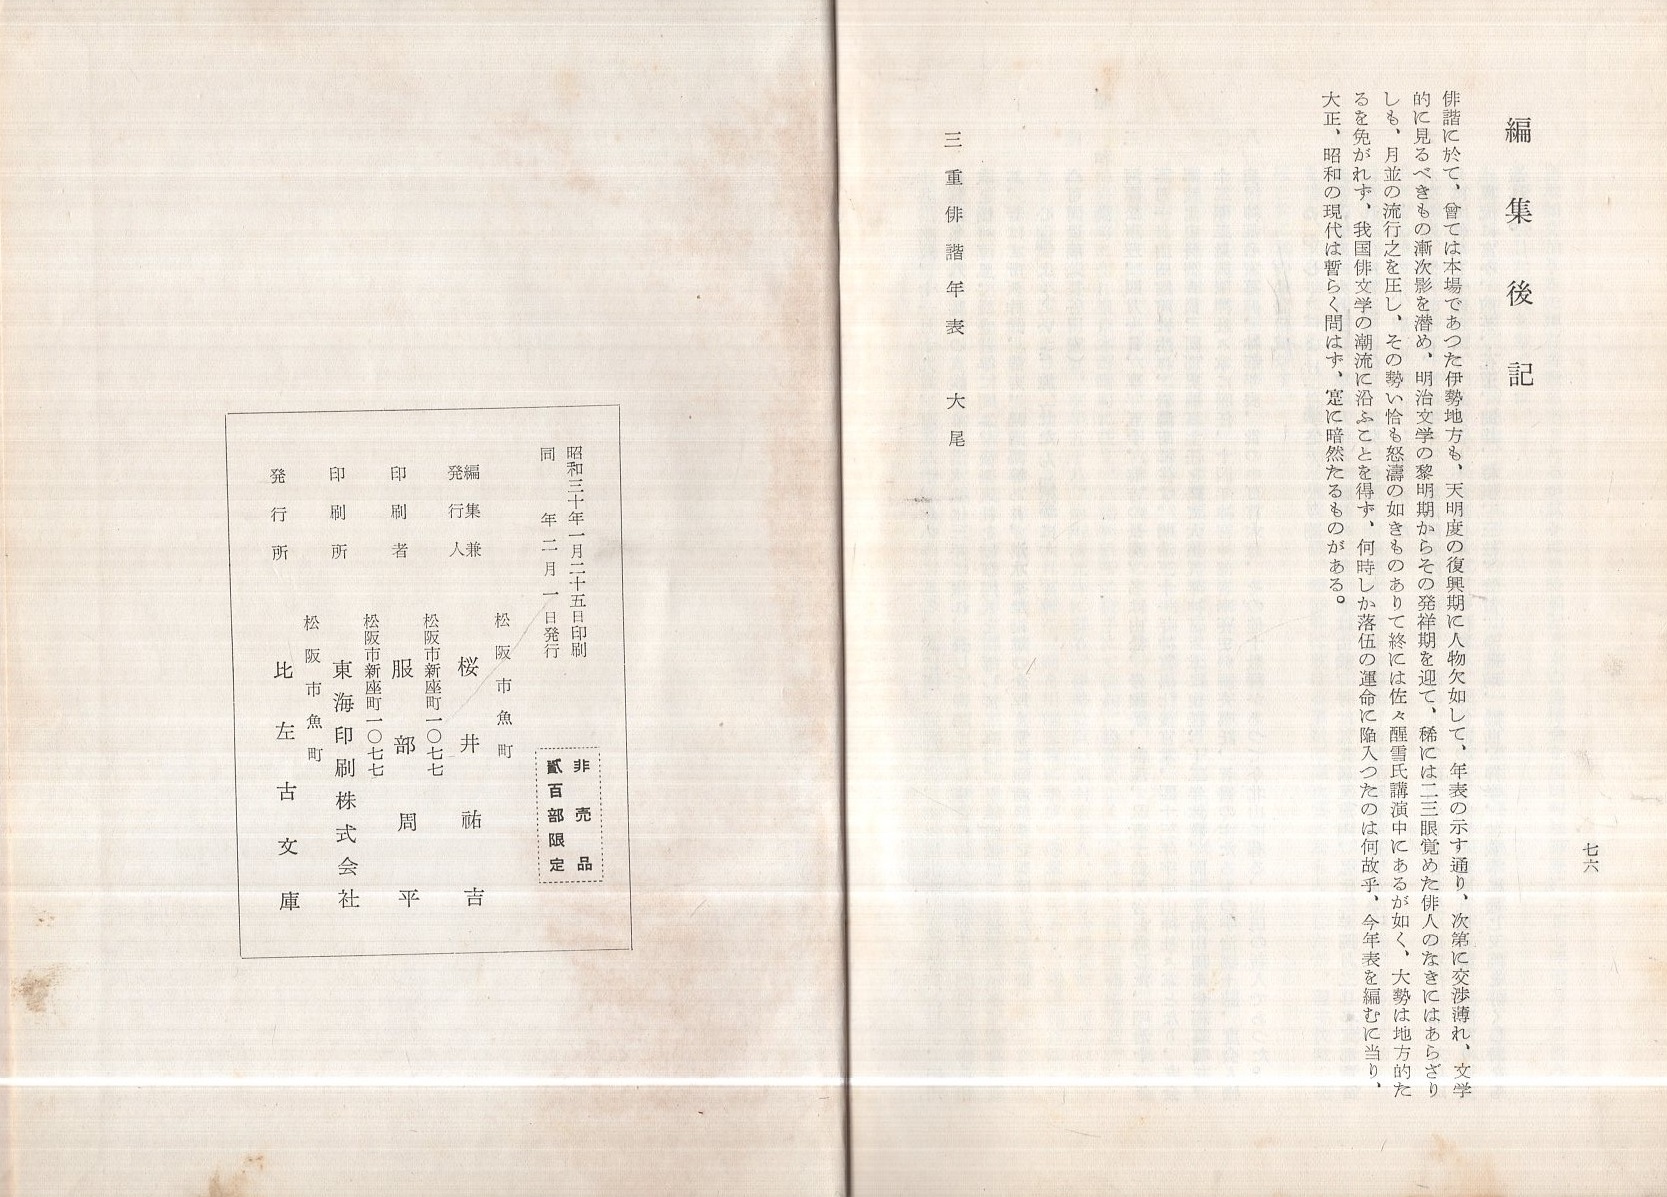 編集後記
俳諧に於て、曾ては本場であつた伊勢地方も、天明度の復興期に人物欠如して、年表の示す通り、次第に交渉薄れ、文学
的に見るべきもの漸次影を潜め、明治文学の黎明期からその発祥期を迎て、稀には二三眼覚めた俳人のなきにはあらざり
しも、月並の流行之を圧し、その勢い恰も怒濤の如きものありて終には佐々醒雪氏講演中にあるが如く、大勢は地方的た
るを免がれず、我国俳文学の潮流に沿ふことを得ず、何時しか落伍の運命に陥入つたのは何故乎、今年表を編むに当り、
大正、昭和の現代は暫らく問はず、寔に暗然たるものがある。
三重俳諧年表 大尾
七六
昭和三十年一月二十五日印刷
同 年二月一日発行
非売品
貳百部限定
編集兼
発行人
松阪市魚町
桜井祐吉
印刷者
松阪市新座町一〇七七
服部周平
印刷所
松阪市新座町一〇七七
東海印刷株式会社
発行所
松阪市魚町
比左古文庫